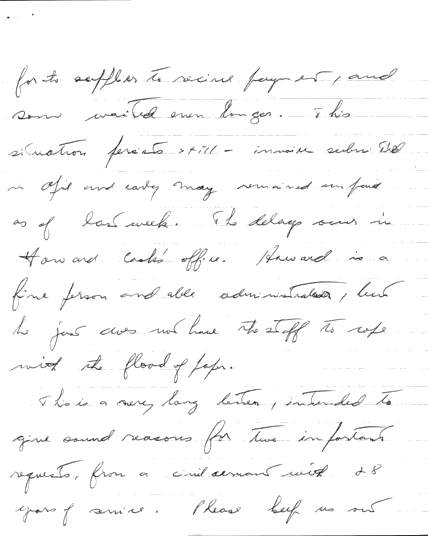 for its suppliers to receive payment, and
some waited even longer. This
situation persists still - invoices submitted
in April and early May remained unpaid
as of last week. The delays occur in
Howard Cook's office. Howard is a
fine person and able administrator, but
he just does not have the staff to cope
with the flood of paper.
This is a very long letter, intended to
give sound reasons for two important
requests, from a civil servant with 28
years of service. Please keep us out